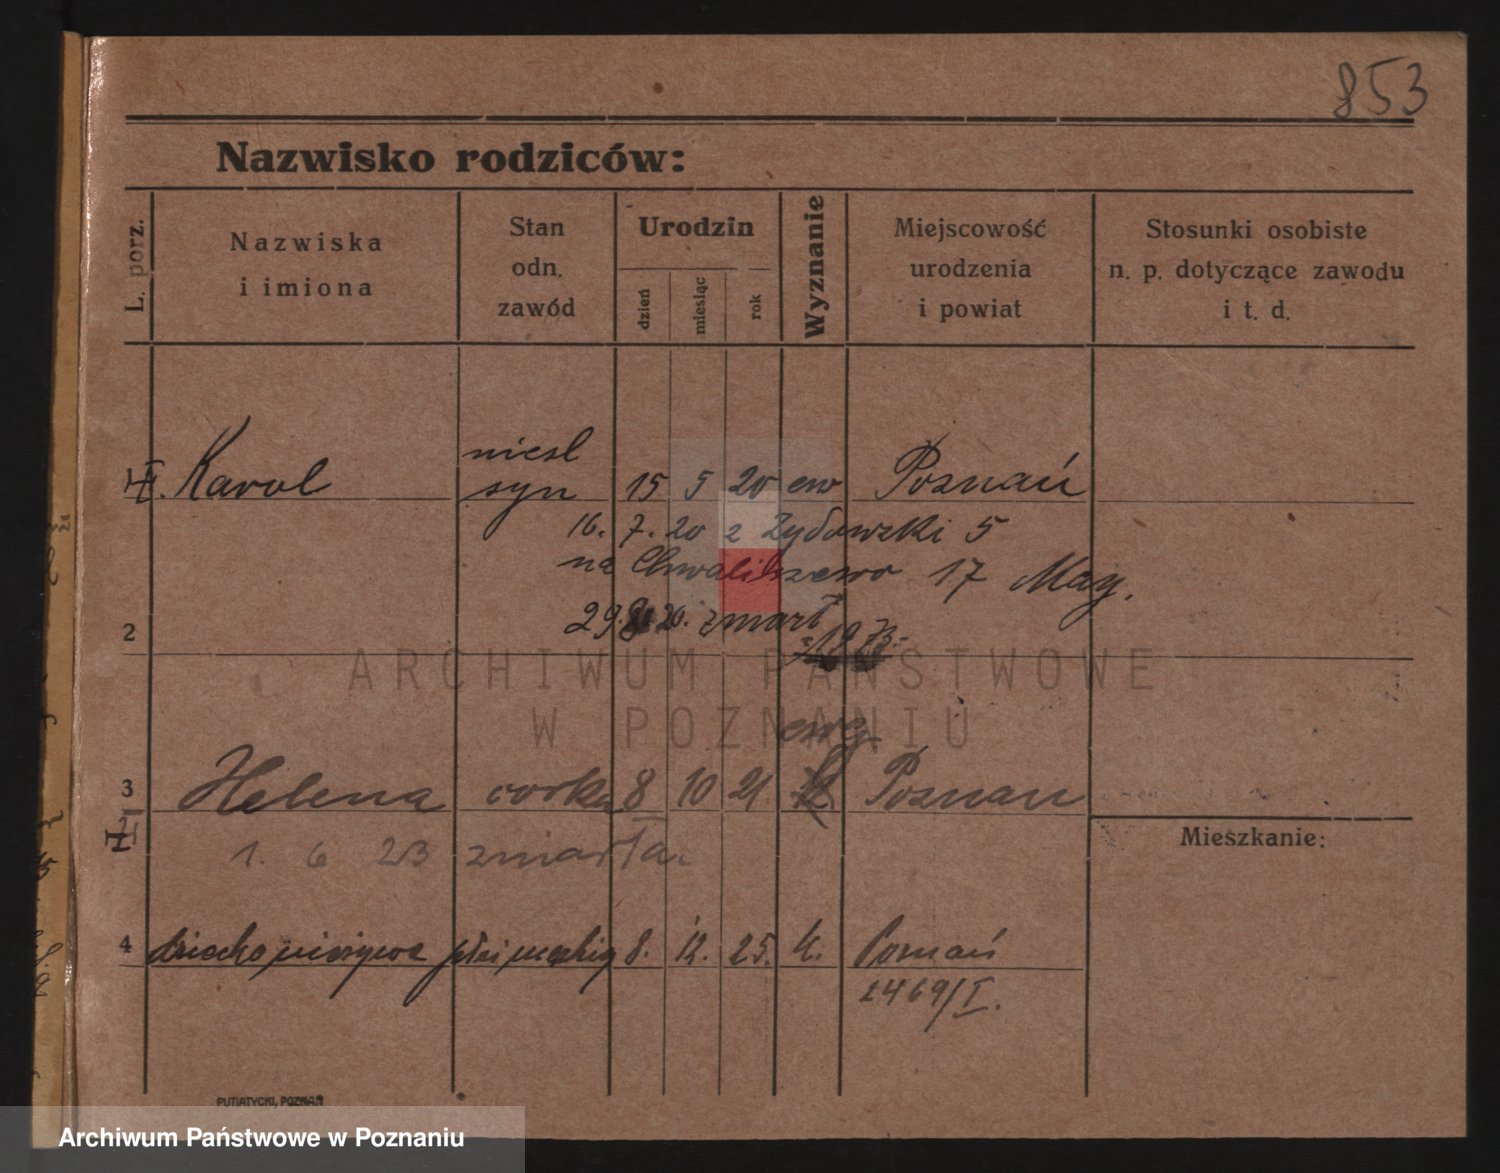 853
Nazwisko rodziców:
L. porz.
Nazwiska
i imiona
Stan
odn.
zawód
Urodzin
dzień
miesiąc
rok
Wyznanie
Miejscowość
urodzenia
i powiat
Stosunki osobiste
n. p. dotyczące zawodu
i t. d.
niesl
Karol syn 15 5 20 ew Poznań
16. 7. 20 z Żydowski 5
na Chwaliszewo 17 May.
29. 8. 20. zmarł
2
ARCHIWUM PAŃSTWOWE
W POZNANIU
ewg
3 Helena corka 8 10 21 Poznan
II
1. 6 23 zmarła
Mieszkanie:
4 dziecko nieżywe płci męskiej 8. 12. 25. k. Poznań
2469/I.
PUTIATYCKI, POZNAŃ
Archiwum Państwowe w Poznaniu